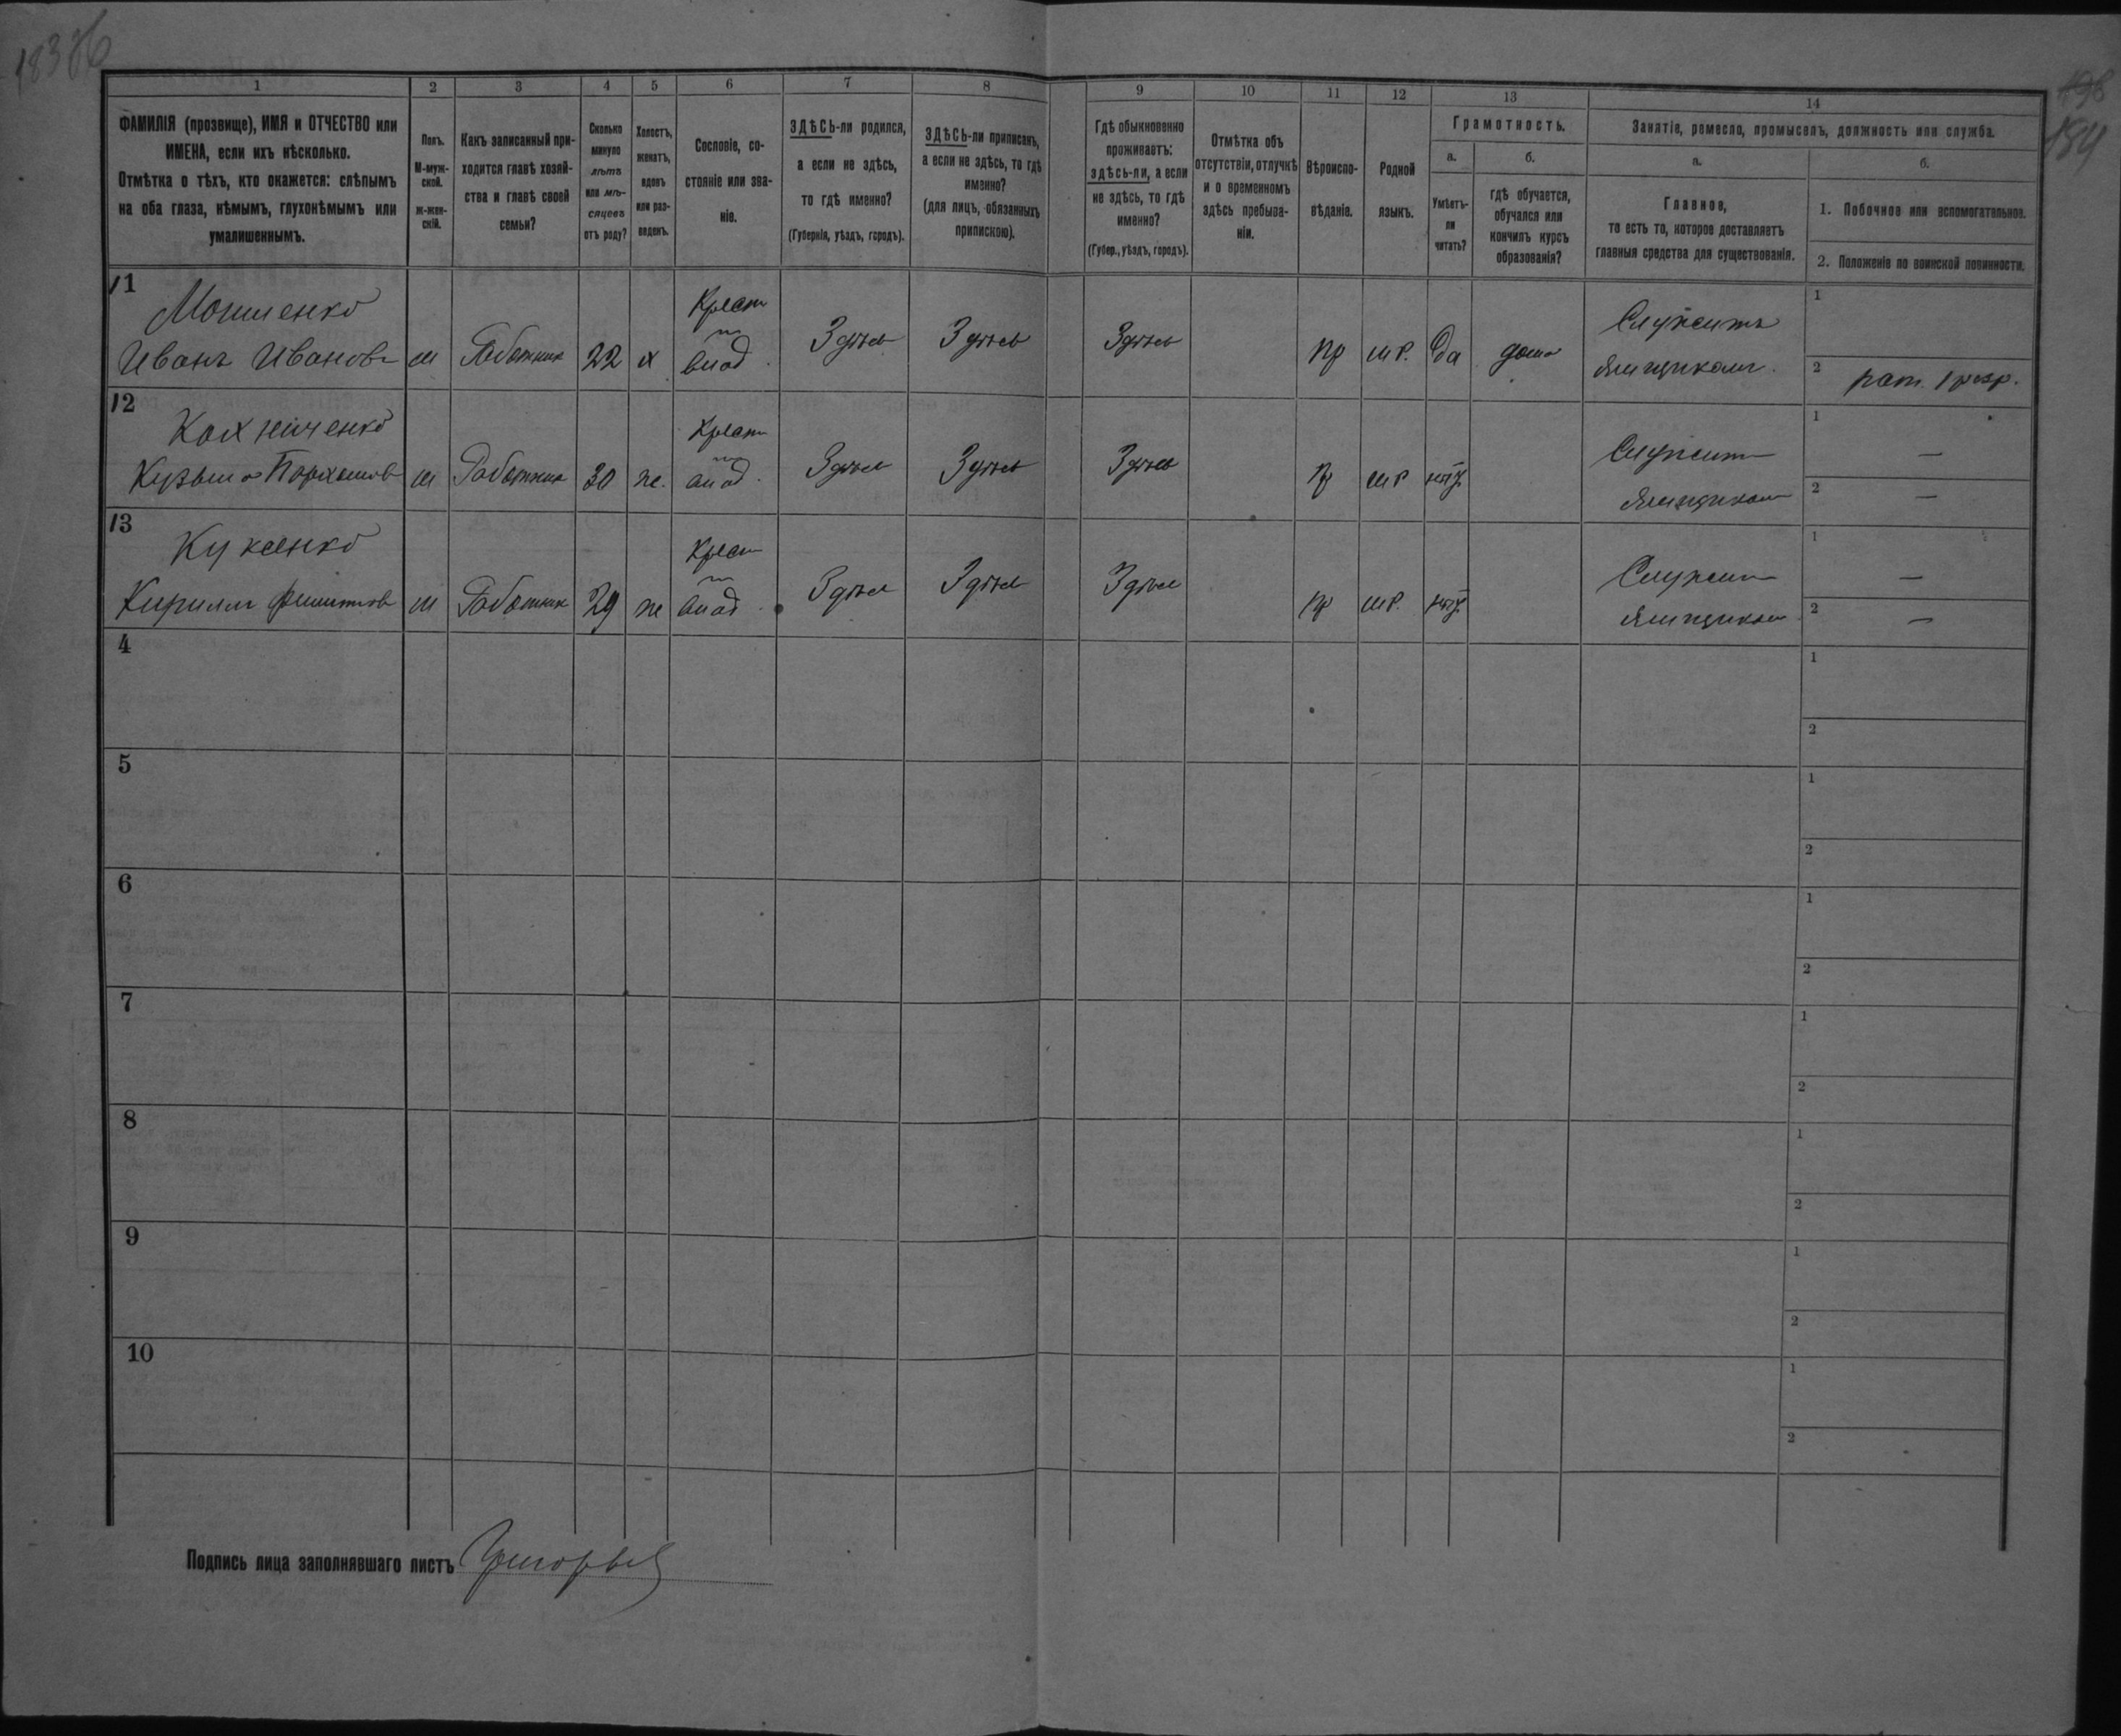 18376
198
184
1
2
3
4
5
6
7
8
9
10
11
12
13
14
ФАМИЛІЯ (прозвище), ИМЯ и ОТЧЕСТВО или
ИМЕНА, если ихъ нѣсколько.
Отмѣтка о тѣхъ, кто окажется: слѣпымъ
на оба глаза, нѣмымъ, глухонѣмымъ или
умалишеннымъ.
Полъ.
М-муж-
ской.
ж-жен-
скій.
Какъ записанный при-
ходится главѣ хозяй-
ства и главѣ своей
семьи?
Сколько
минуло
лѣтъ
или мѣ-
сяцевъ
отъ роду?
Холостъ,
женатъ,
вдовъ
или раз-
веденъ.
Сословіе, со-
стояніе или зва-
ніе.
ЗДѢСЬ-ли родился,
а если не здѣсь,
то гдѣ именно?
(Губернія, уѣздъ, городъ).
ЗДѢСЬ-ли приписанъ,
а если не здѣсь, то гдѣ
именно?
(для лицъ, обязанныхъ
припискою).
Гдѣ обыкновенно
проживаетъ:
здѣсь-ли, а если
не здѣсь, то гдѣ
именно?
(Губер., уѣздъ, городъ).
Отмѣтка объ
отсутствіи, отлучкѣ
и о временномъ
здѣсь пребыва-
ніи.
Вѣроиспо-
вѣданіе.
Родной
языкъ.
Грамотность.
а.
Умѣетъ-
ли
читать?
б.
гдѣ обучается,
обучался или
кончилъ курсъ
образованія?
Занятіе, ремесло, промыселъ, должность или служба.
а.
Главное,
то есть то, которое доставляетъ
главныя средства для существованія.
б.
1. Побочное или вспомогательное.
2. Положеніе по воинской повинности.
11
Иванъ Ивановъ м Работникъ 22 х Крест влад. Здѣсь Здѣсь Здѣсь пр мр. Да дома Служитъ Ямщикомъ. 1
2 рат. 1 разр.
12
Кузьма Пархомовъ м Работникъ 30 ж. Крест влад. Здѣсь Здѣсь Здѣсь пр мр Служитъ Ямщикомъ 1 —
2 —
13 Куксенко
Кириллъ Филиповъ м Работникъ 29 ж Крест влад. Здѣсь Здѣсь Здѣсь пр мр. Служитъ Ямщикомъ 1 —
2 —
4 1
2
5 1
2
6 1
2
7 1
2
8 1
2
9 1
2
10 1
2
Подпись лица заполнявшаго листъ Григорьев